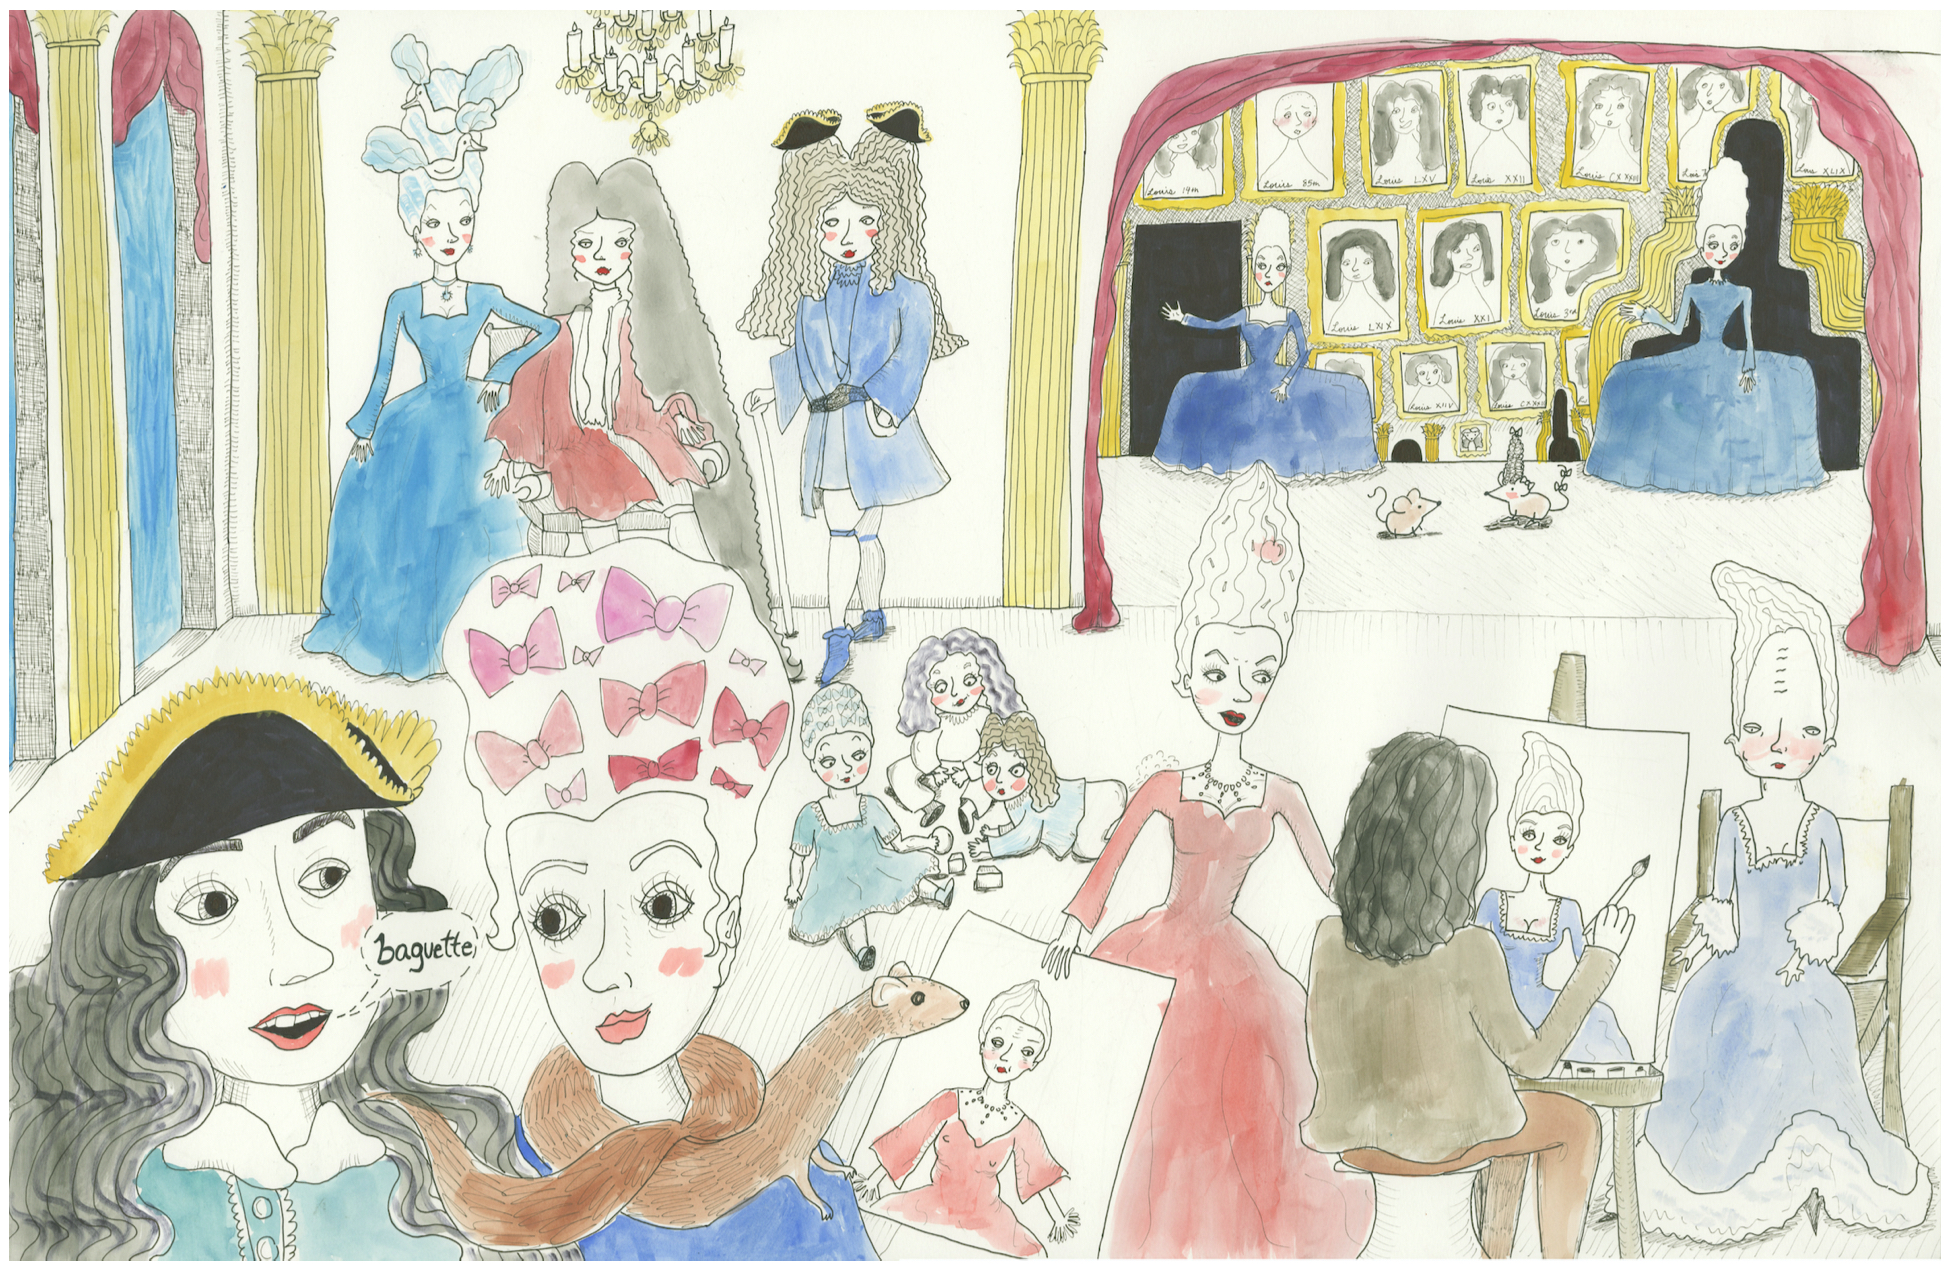 Louis 19m
Louis 85m
Louis LXV
Louis XXII
Louis CXXXII
Louis XLIX
Louis LXIX
Louis XXI
Louis 3rd
Louis XIIV
baguette